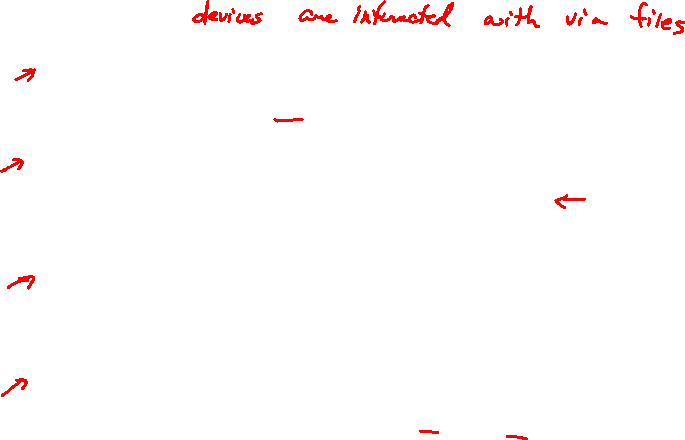 devices are interacted with via files